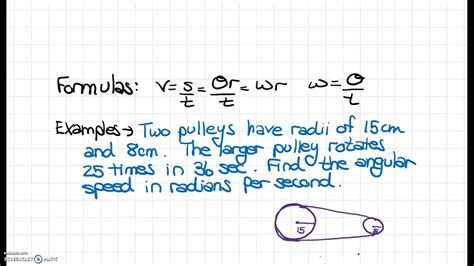 Formulas: v = s/t = θr/t = ωr ω = θ/t
Examples → Two pulleys have radii of 15cm
and 8cm. The larger pulley rotates
25 times in 36 sec. Find the angular
speed in radians per second.
15 8
SCREENCAST-O-MATIC